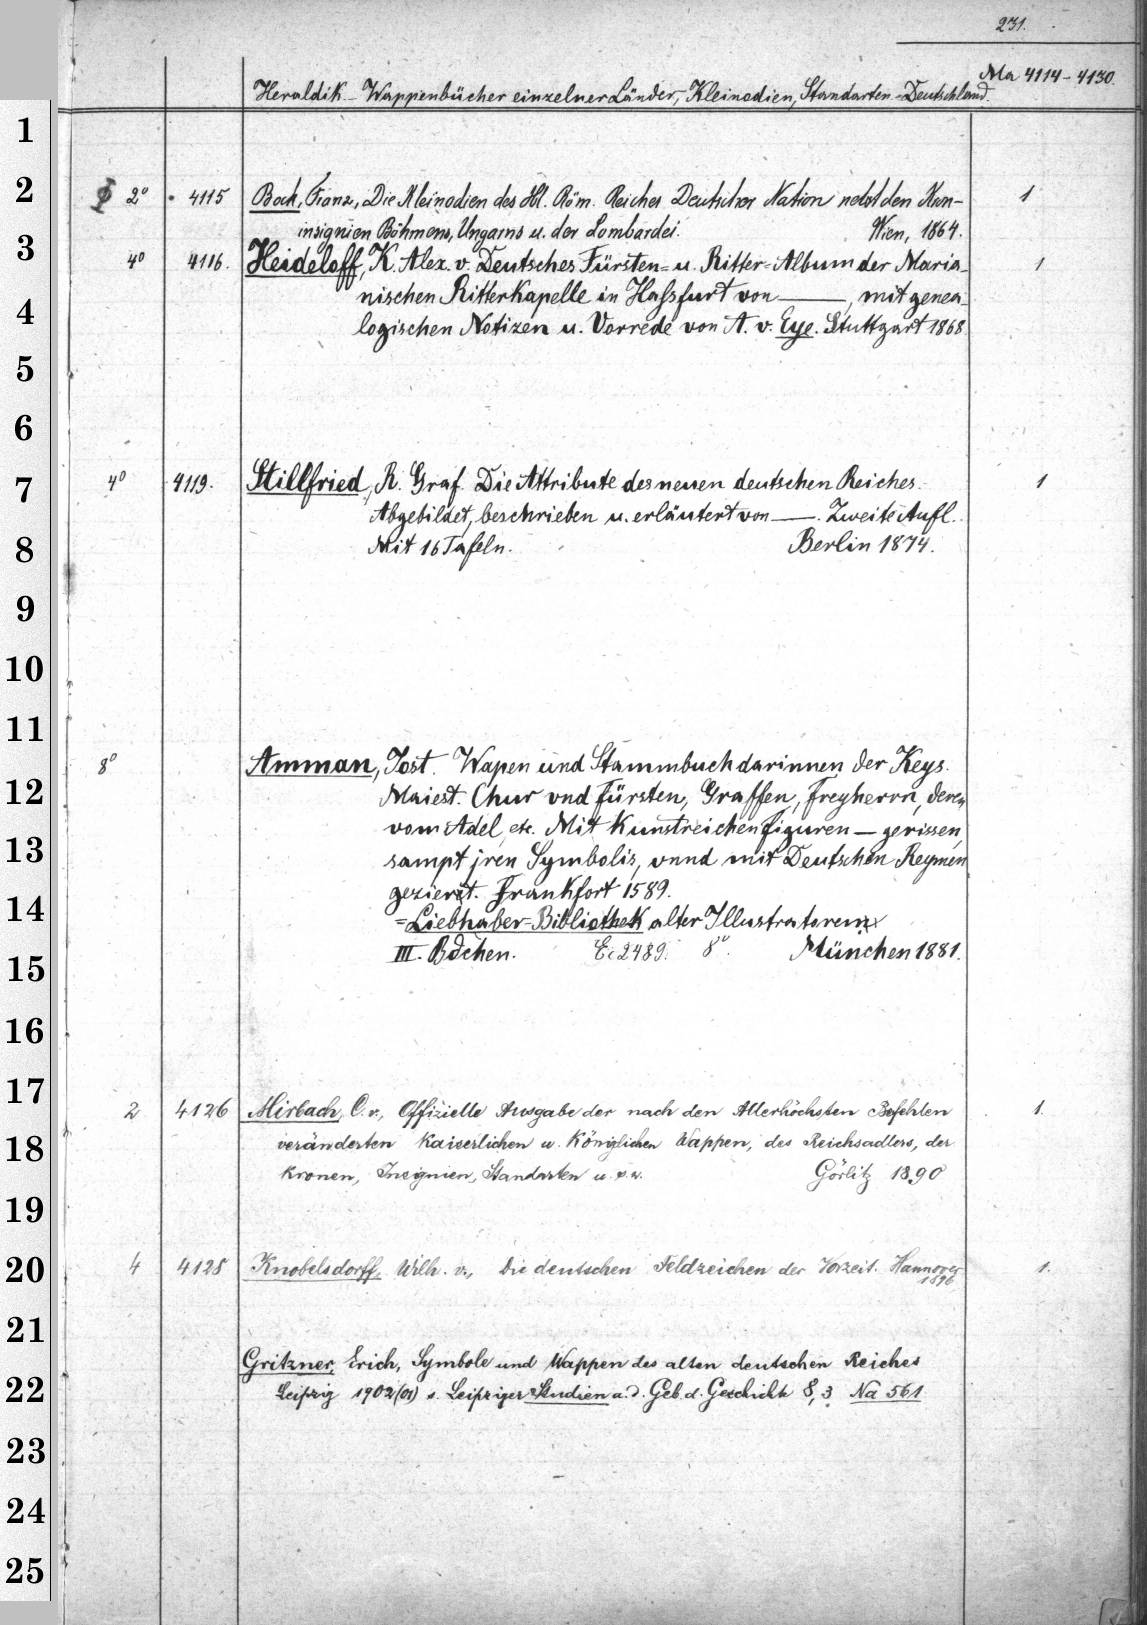 231.
Ma 4114-4130.
Heraldik - Wappenbücher einzelner Länder, Kleinodien, Standarten - Deutschland.
1
2
2° 4115 Bock, Franz, Die Kleinodien des Hl. Röm. Reiches Deutscher Nation nebst den Kron- 1
insignien Böhmens, Ungarns u. der Lombardei. Wien, 1864.
3
4° 4116. Heideloff, K. Alex. v. Deutsches Fürsten= u. Ritter=Album der Maria- 1
nischen Ritterkapelle in Hassfurt von ——, mit genea-
4
logischen Notizen u. Vorrede von A. v. Eye. Stuttgart 1868
5
6
7
4° 4119. Stillfried, R. Graf. Die Attribute des neuen deutschen Reiches. 1
Abgebildet, beschrieben u. erläutert von ——. Zweite Aufl.
8
Mit 16 Tafeln. Berlin 1874.
9
10
11
8° Amman, Jost. Wapen und Stammbuch darinnen der Keys.
12
Maiest. Chur vnd Fürsten, Graffen, Freyherrn, deren
vom Adel, etc. Mit kunstreichen figuren — gerissen,
13
sampt jren Symbolis, vnnd mit Deutschen Reymen
geziert. Frankfort 1589.
14
=Liebhaber=Bibliothek alter Illustratoren
III. Bdchen. 2489. 8°. München 1881.
15
16
17
2 4126 Mirbach, O. v., Offizielle Ausgabe der nach den Allerhöchsten Befehlen 1.
18
veränderten Kaiserlichen u. Königlichen Wappen, des Reichsadlers, der
Kronen, Insignien, Standarten u. s. w. Görlitz 1890
19
20
4 4128 Knobelsdorff, Wilh. v., Die deutschen Feldzeichen der Vorzeit. Hannover 1.
1896
21
Gritzner, Erich, Symbole und Wappen des alten deutschen Reiches
22
Leipzig 1902 (01) s. Leipziger Studien a. d. Geb. d. Geschichte 8, 3 Na 561
23
24
25